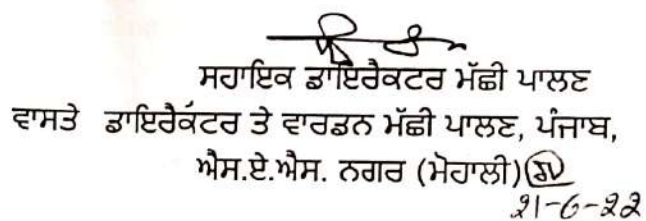 ਸਹਾਇਕ ਡਾਇਰੈਕਟਰ ਮੱਛੀ ਪਾਲਣ
ਵਾਸਤੇ ਡਾਇਰੈਕਟਰ ਤੇ ਵਾਰਡਨ ਮੱਛੀ ਪਾਲਣ, ਪੰਜਾਬ,
ਐਸ.ਏ.ਐਸ. ਨਗਰ (ਮੋਹਾਲੀ)
21-6-22